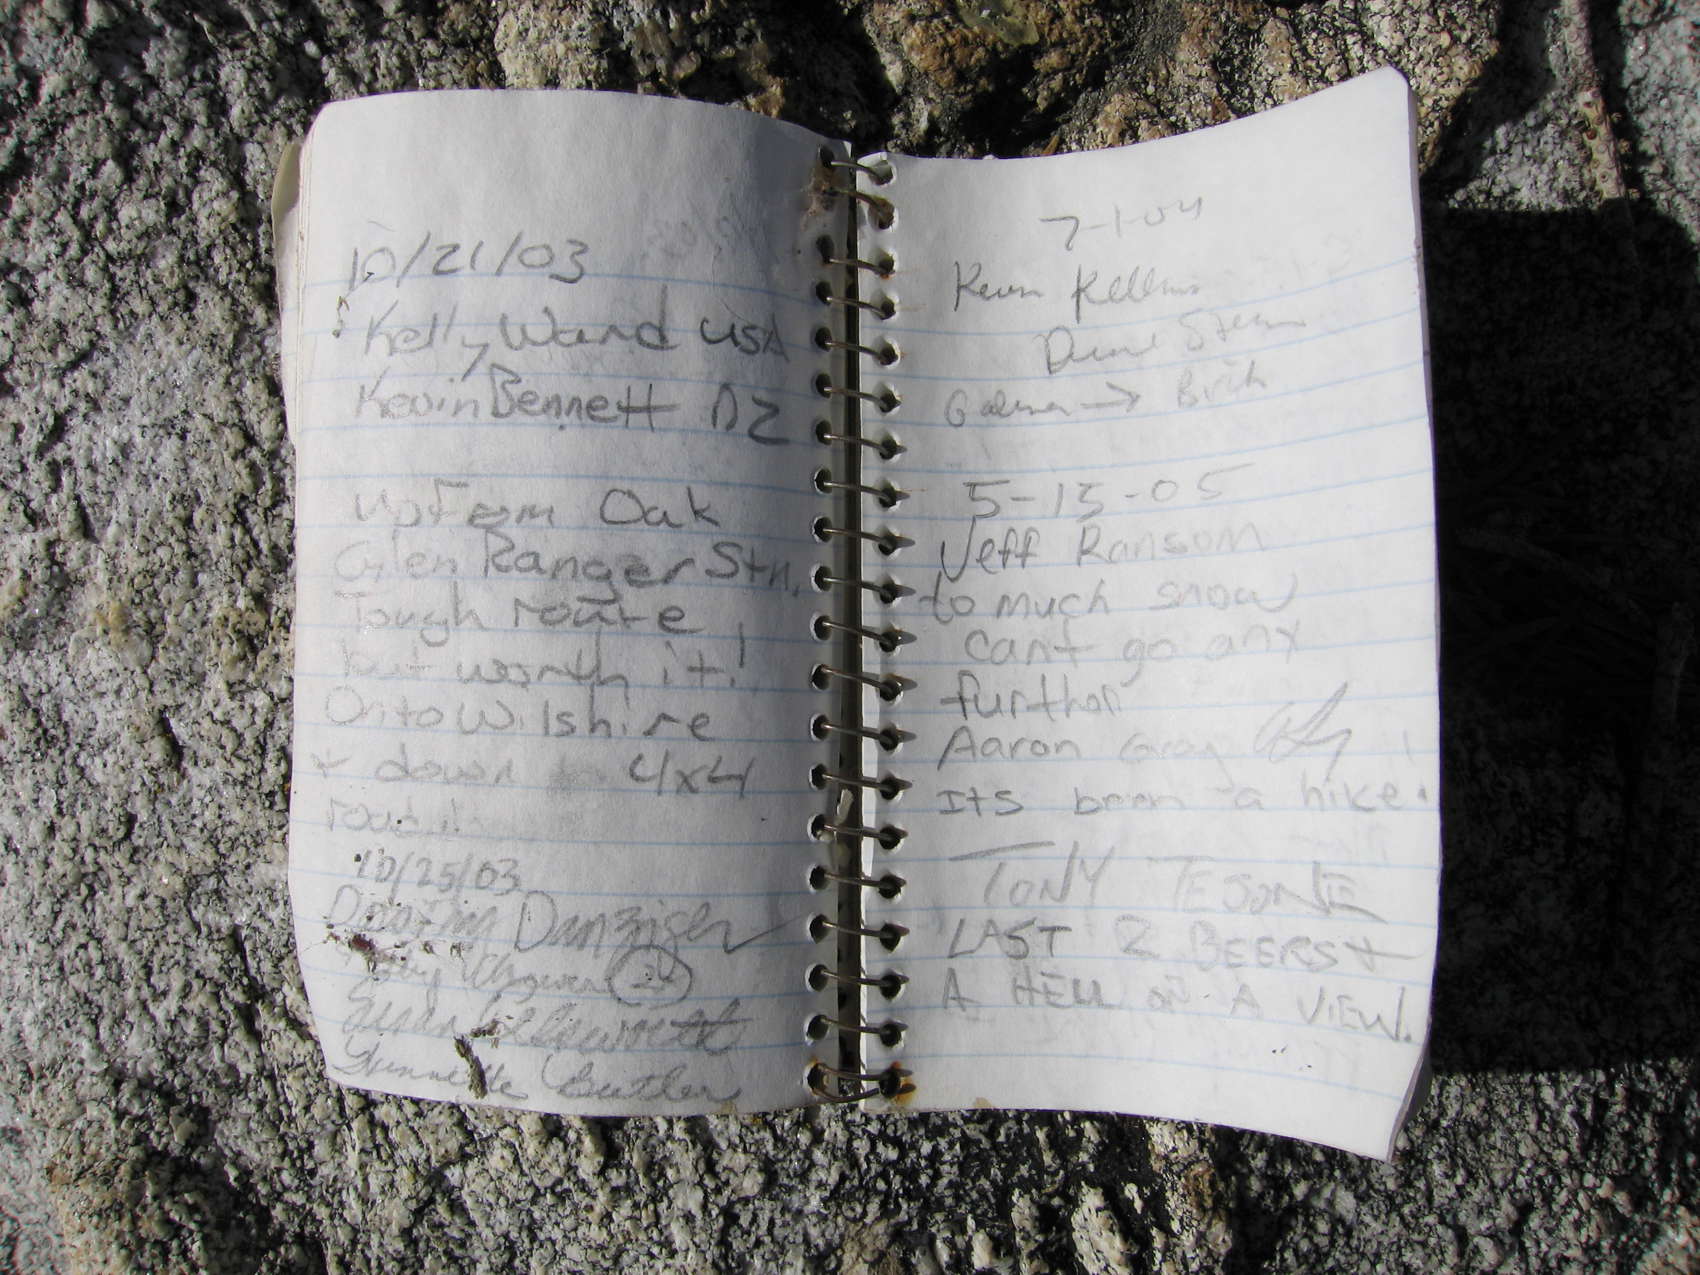 10/21/03
Kelly Ward USA
Kevin Bennett NZ
Up From Oak
Glen Ranger Stn.
Tough route
but worth it!
Onto Wilshire
+ down to 4x4
road!
10/25/03
Danziger
Susan Ellsworth
Butler
7-1-04
Kevin
Galena → Birch
5-15-05
Jeff Ransom
to much snow
cant go any
further
Aaron Gray
Its been a hike!
TONY TESONE
LAST 2 BEERS +
A HELL OF A VIEW.